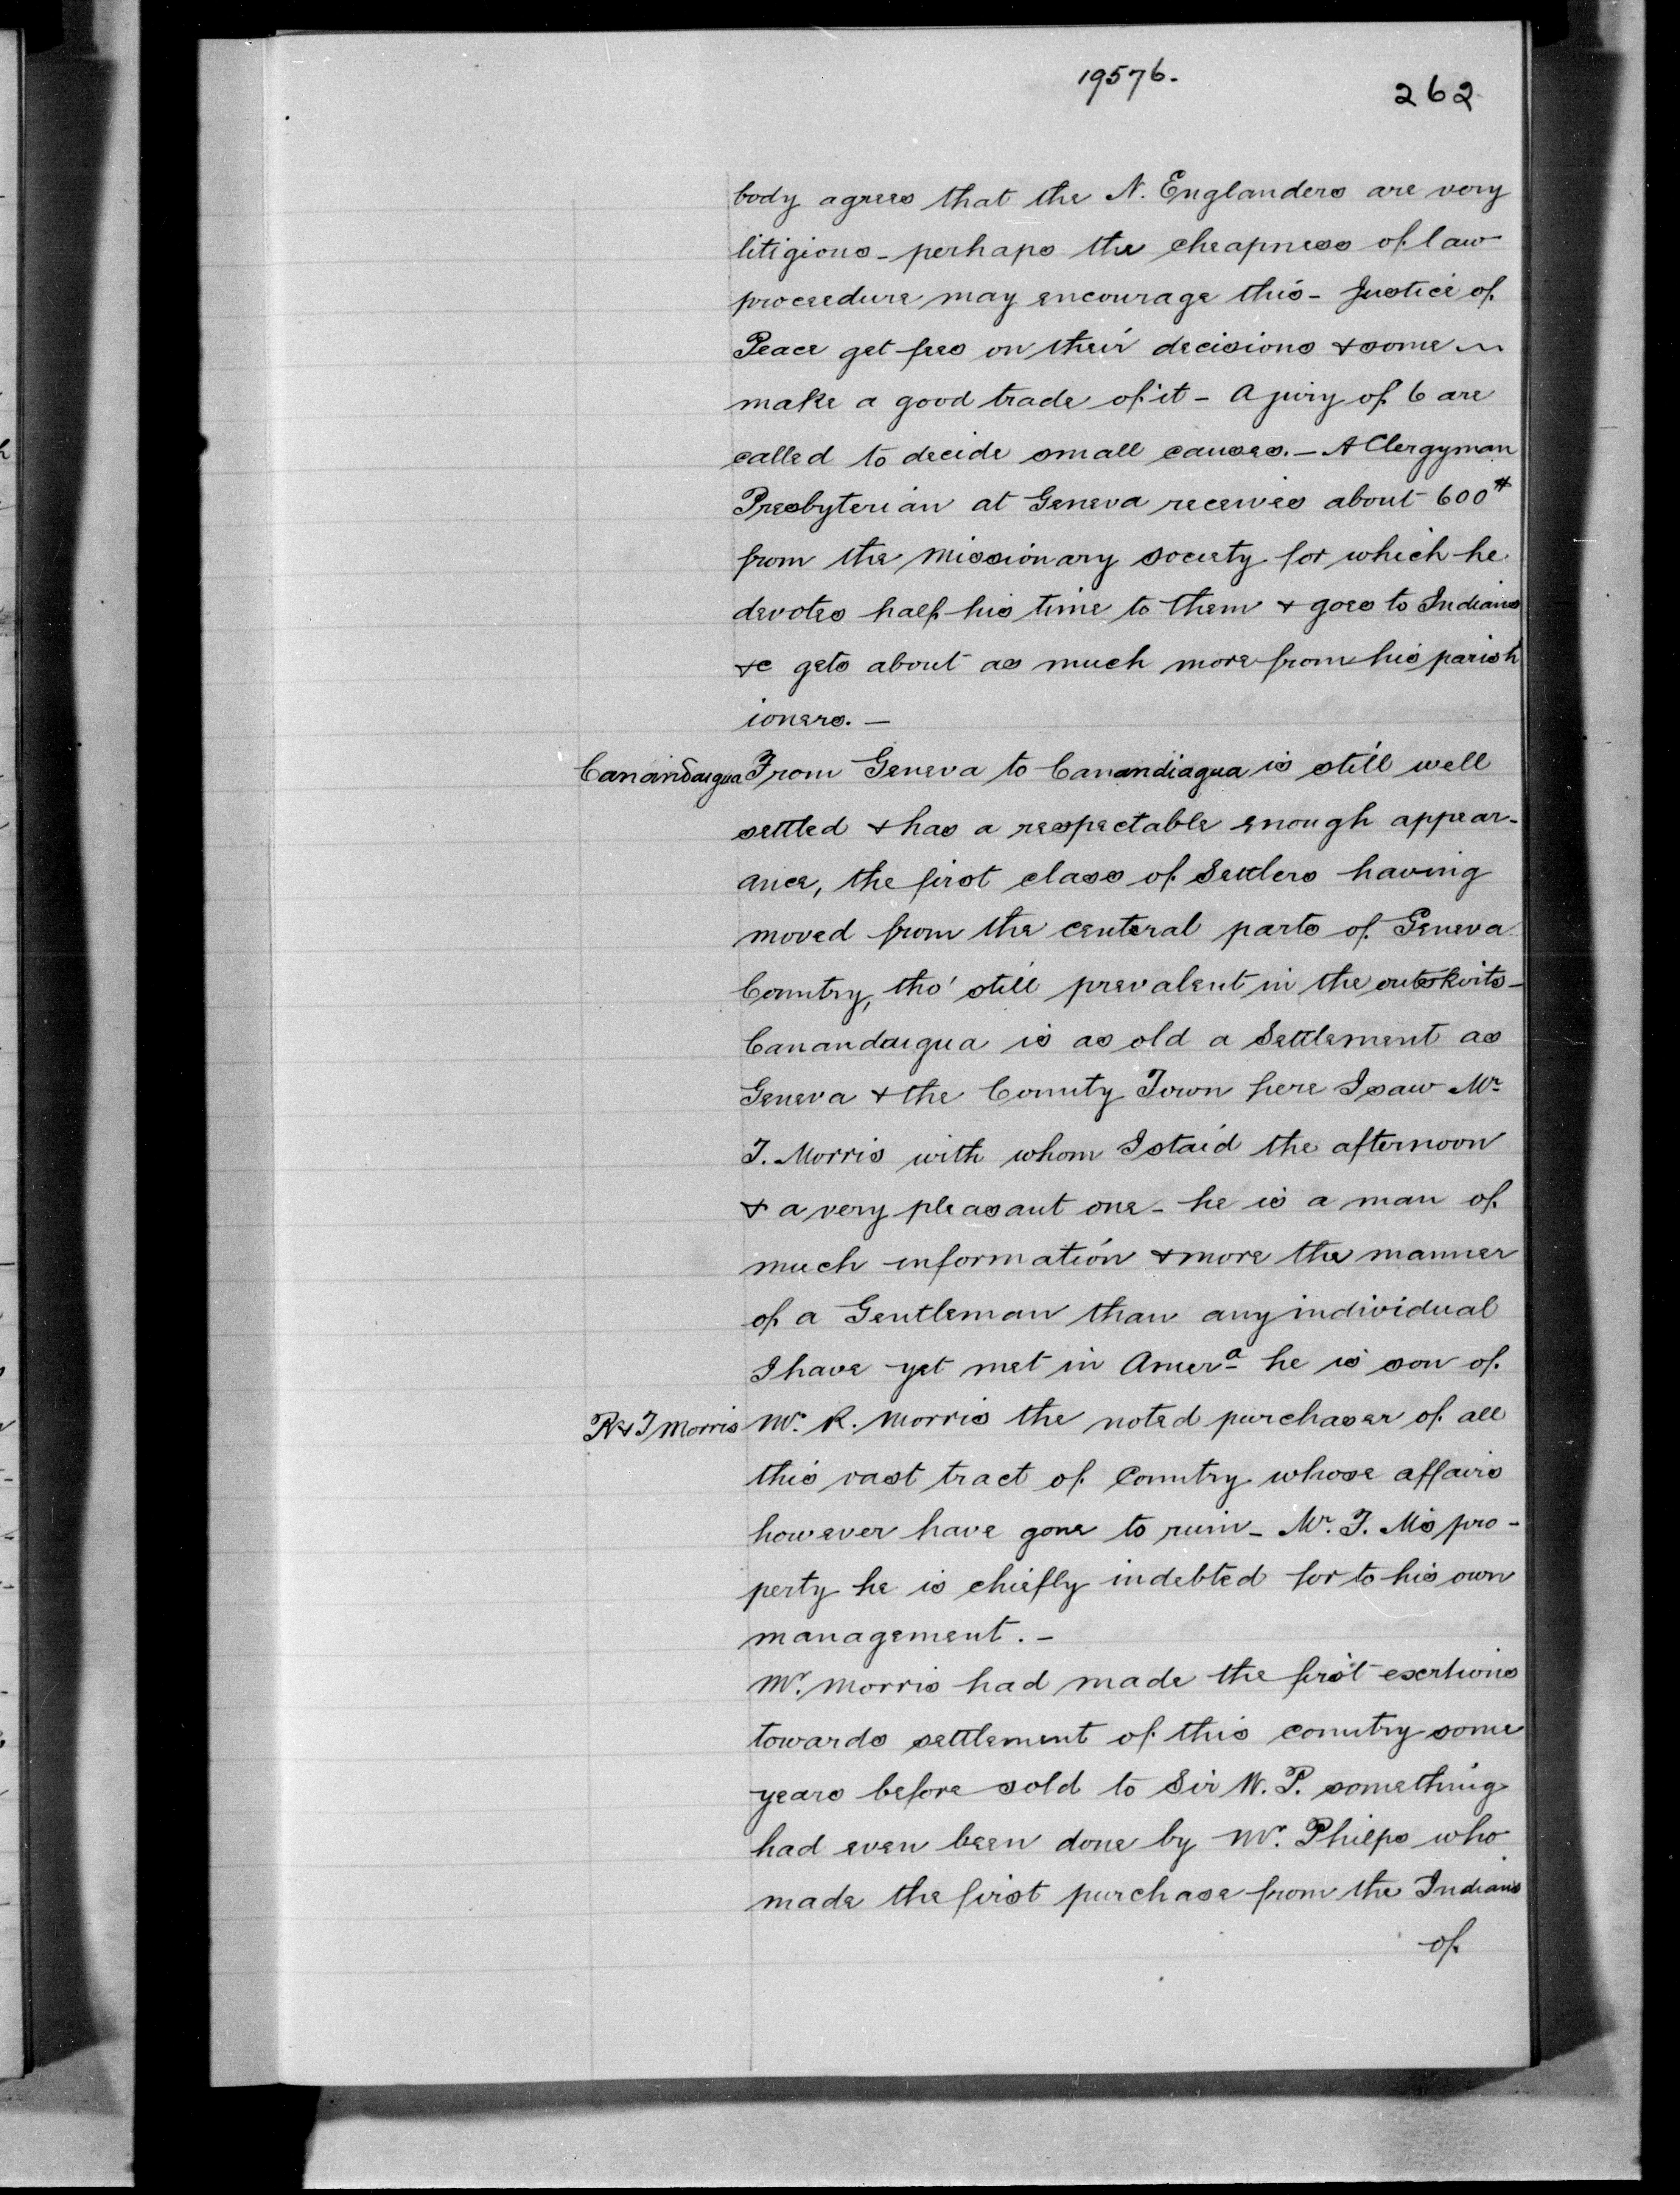 19576.
262
body agrees that the N. Englanders are very
litigious - perhaps the cheapness of law
proceedure may encourage this - Justice of
Peace get fees on their decisions & some ~
make a good trade of it - A jury of 6 are
called to decide small causes. - A Clergyman
Presbyterian at Geneva receives about 600#
from the Missionary society for which he
devotes half his time to them & goes to Indians
&c gets about as much more from his parish
ioners. -
Canandaigua From Geneva to Canandiagua is still well
settled & has a respectable enough appear-
ance, the first class of Settlers having
moved from the centeral parts of Geneva
Country, tho' still prevalent in the outskirts -
Canandaigua is as old a Settlement as
Geneva & the County Town here I saw Mr
T. Morris with whom I staid the afternoon
& a very pleasant one - he is a man of
much information & more the manner
of a Gentleman than any individual
I have yet met in Amera he is son of
R & T Morris Mr. R. Morris the noted purchaser of all
this vast tract of Country whose affairs
however have gone to ruin - Mr. T. Ms pro-
perty he is chiefly indebted for to his own
management. -
Mr. Morris had made the first exertions
towards settlement of this country some
years before sold to Sir W. P. something
had even been done by Mr. Phelps who
made the first purchase from the Indians
of